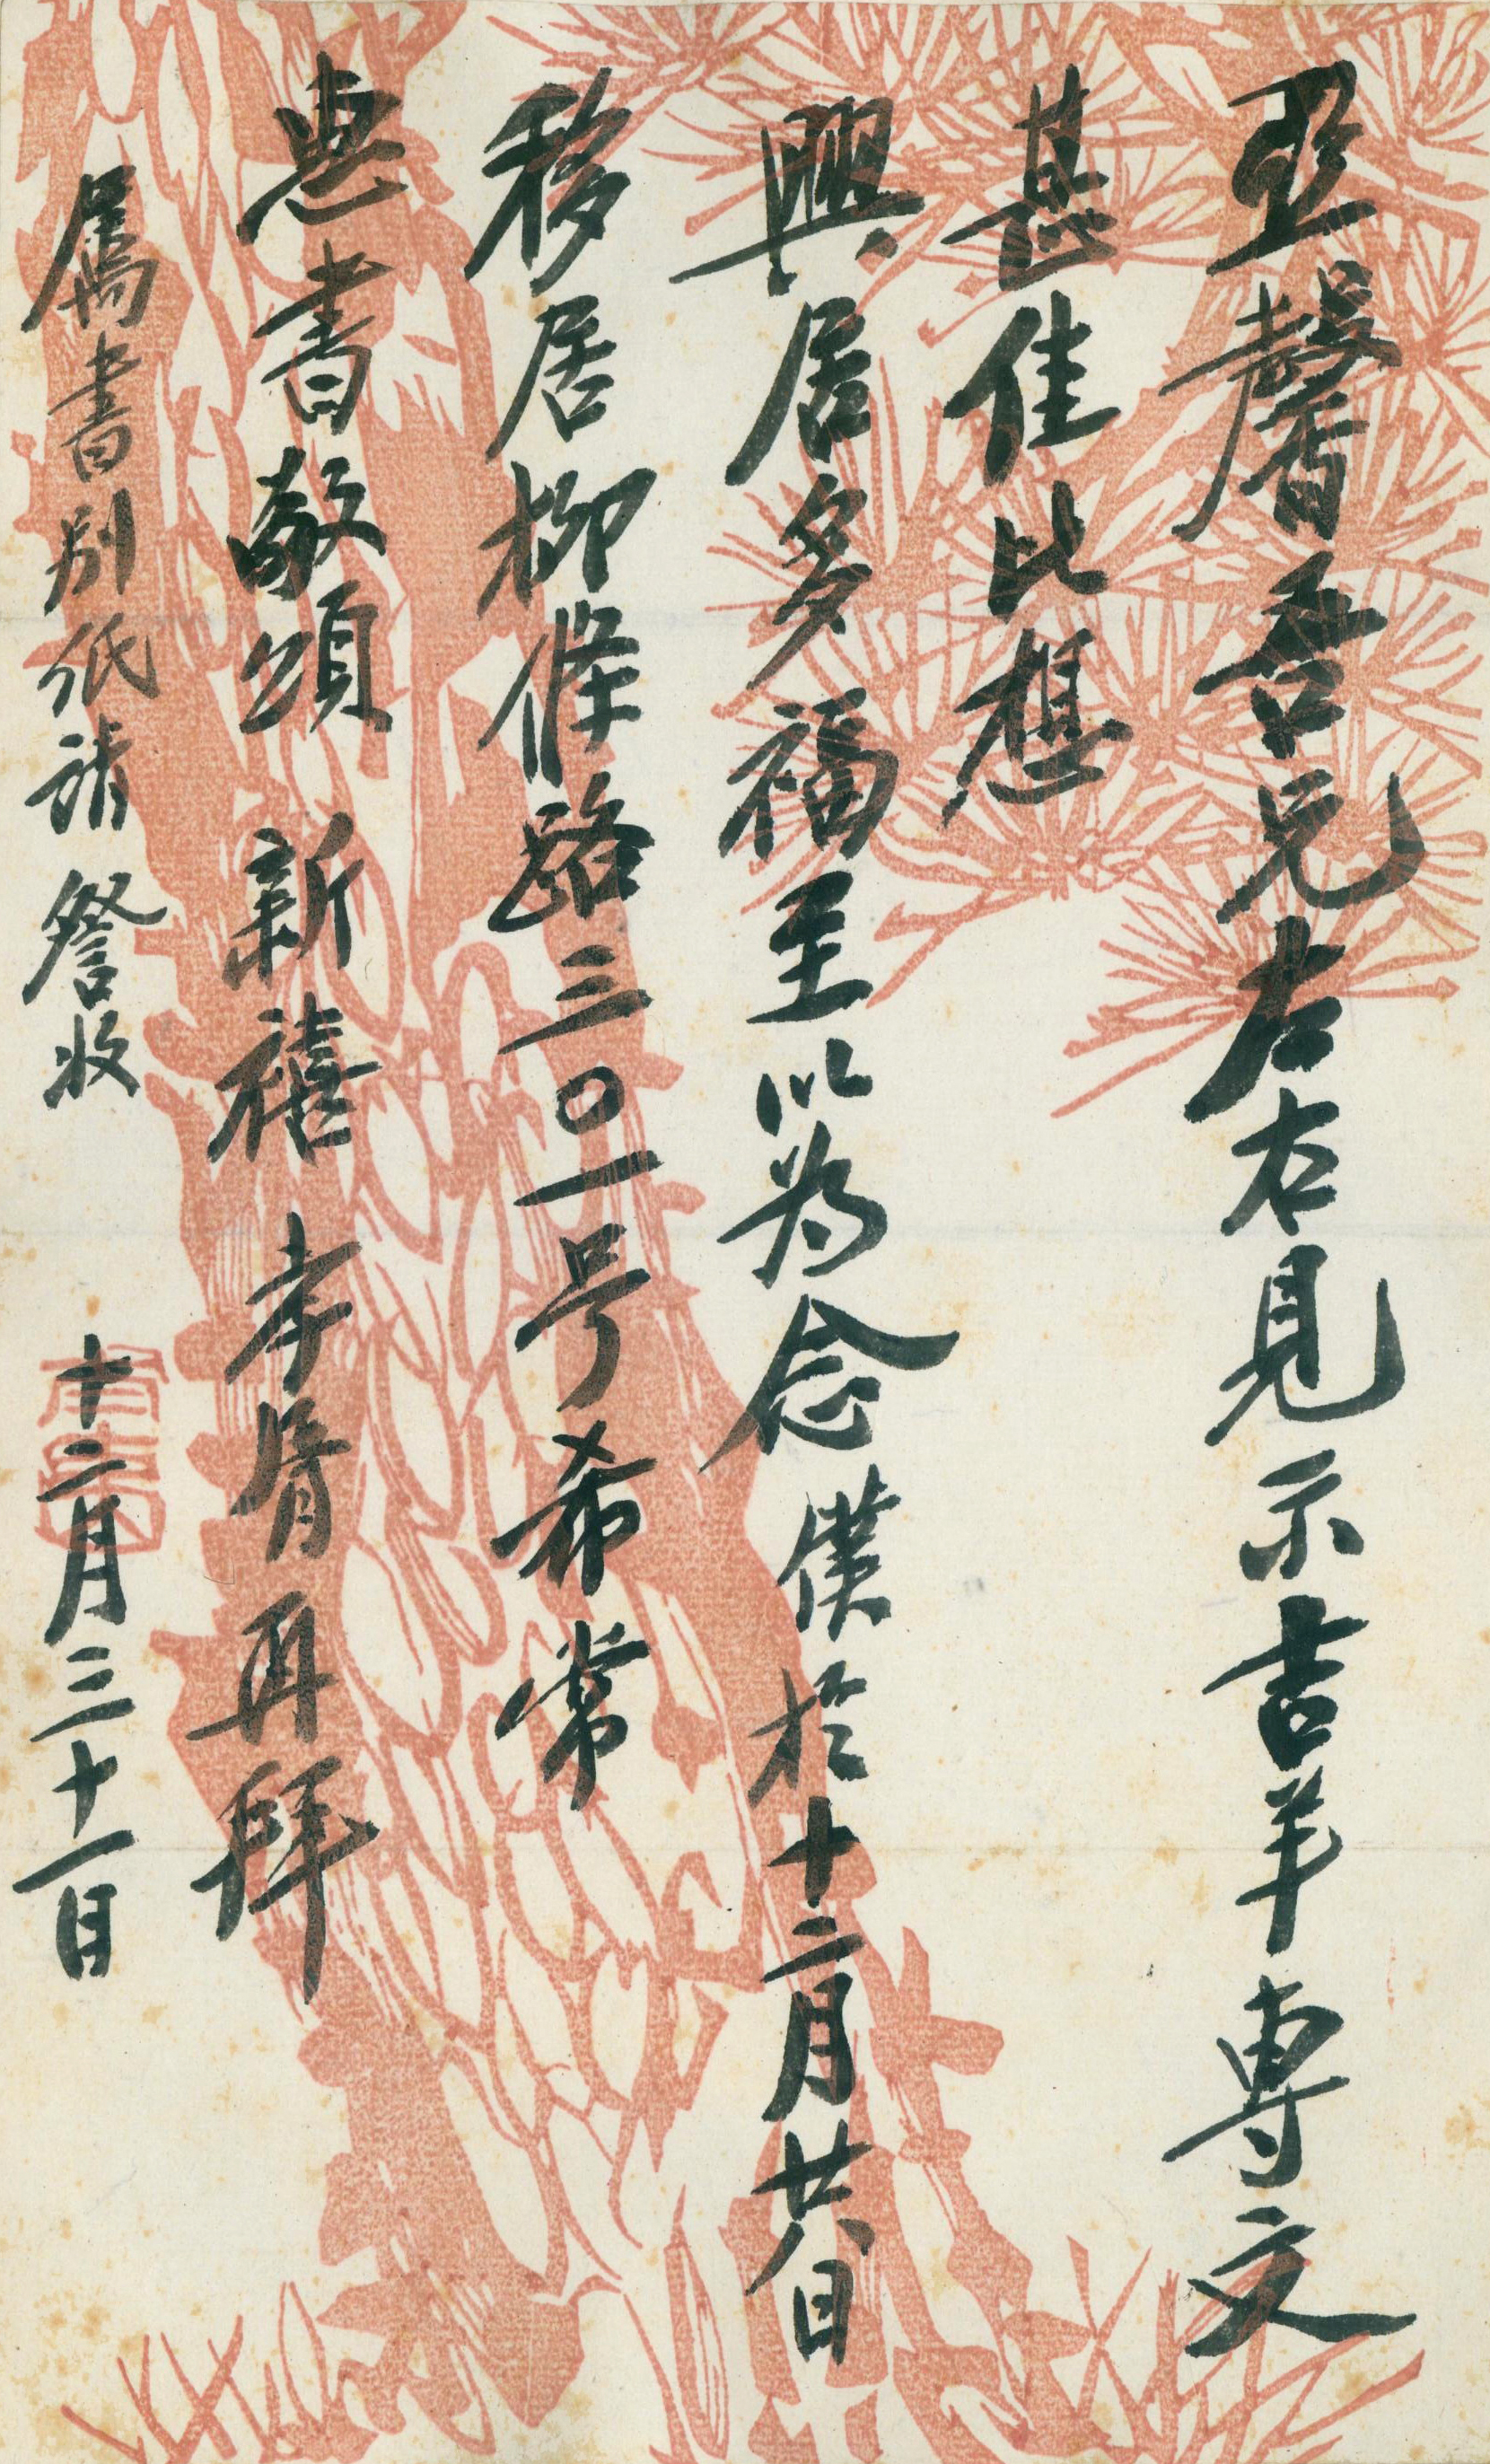 亞馨吾兄左右見示吉羊専文
甚佳比想
興居多福至以為念僕於十二月廿八日
移居柳條路三〇一号希常
惠書敬頌 新禧 孝胥再拜
属書別紙請詧收 十二月三十一日